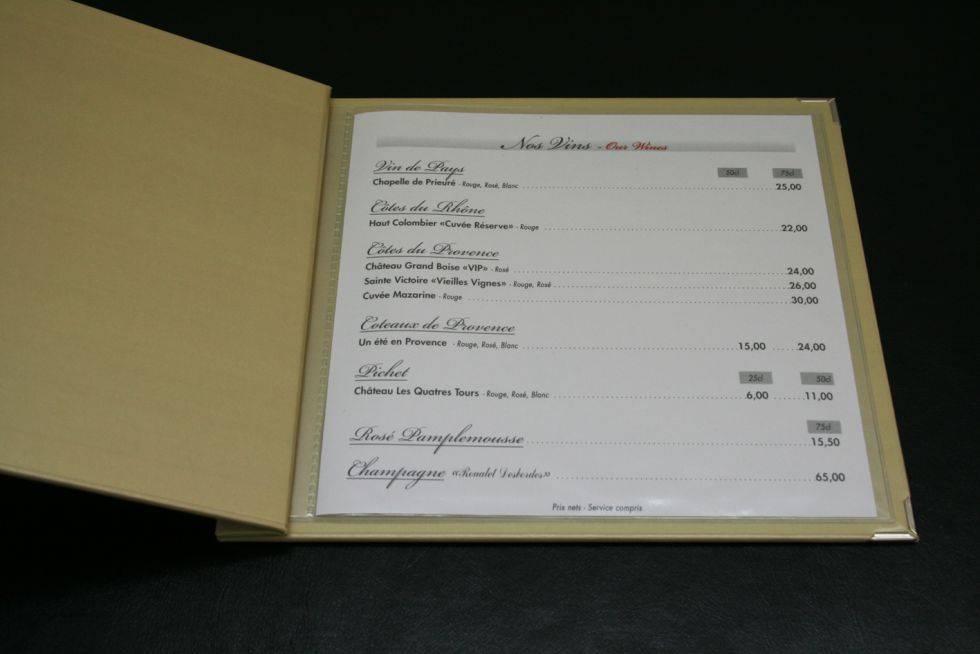 Nos Vins - Our Wines
Vin de Pays 50cl 75cl
Chapelle de Prieuré - Rouge, Rosé, Blanc 25,00
Côtes du Rhône
Haut Colombier «Cuvée Réserve» - Rouge 22,00
Côtes du Provence
Château Grand Boise «VIP» - Rosé 24,00
Sainte Victoire «Vieilles Vignes» - Rouge, Rosé 26,00
Cuvée Mazarine - Rouge 30,00
Coteaux de Provence
Un été en Provence - Rouge, Rosé, Blanc 15,00 24,00
Pichet 25cl 50cl
Château Les Quatres Tours - Rouge, Rosé, Blanc 6,00 11,00
75cl
Rosé Pamplemousse 15,50
Champagne «Roualet Desbordes» 65,00
Prix nets - Service compris